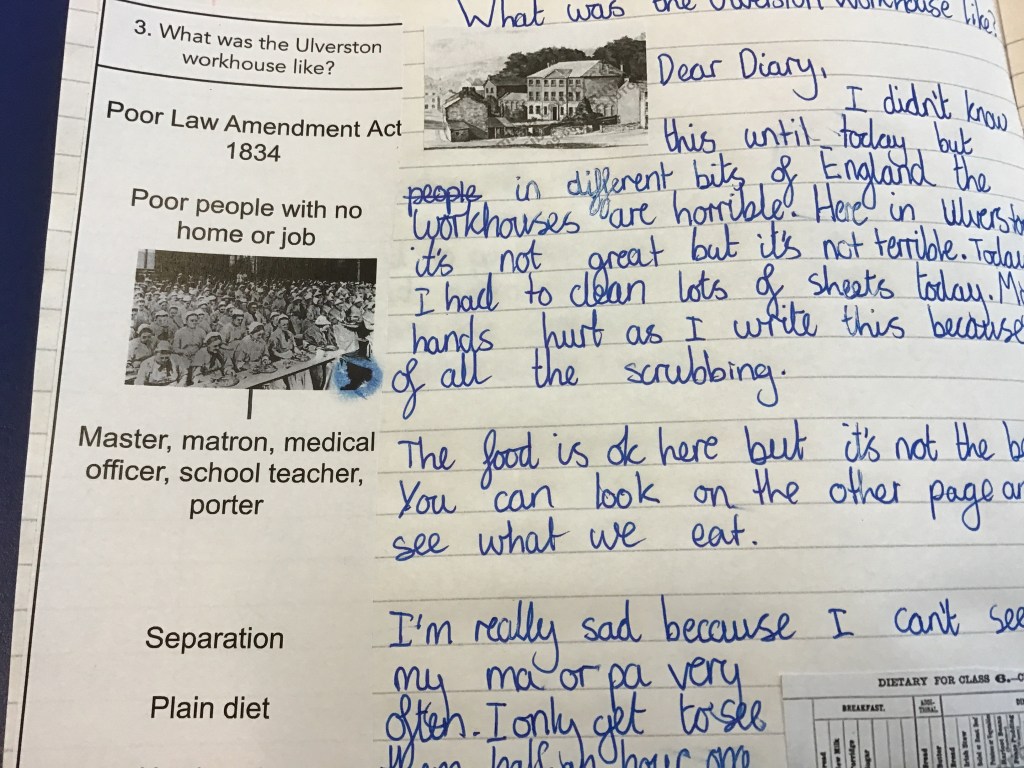 What was the Ulverston workhouse like?
3. What was the Ulverston
workhouse like?
Poor Law Amendment Act
1834
Poor people with no
home or job
Master, matron, medical
officer, school teacher,
porter
Separation
Plain diet
Dear Diary,
I didn't know
this until today but
people in different bits of England the
workhouses are horrible. Here in Ulversto
it's not great but it's not terrible. Today
I had to clean lots of sheets today. My
hands hurt as I write this because
of all the scrubbing.
The food is ok here but it's not the be
You can look on the other page an
see what we eat.
I'm really sad because I can't see
my ma or pa very
often. I only get to see
them half an hour one
DIETARY FOR CLASS 6.—C
BREAKFAST.
ADDITIONAL